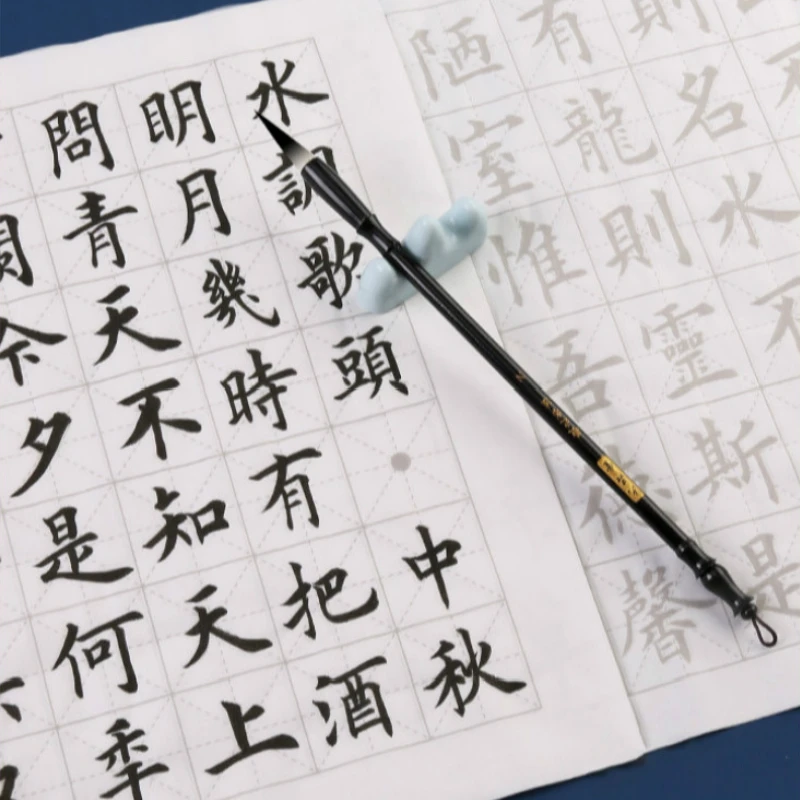 則名水不
有龍則靈斯是
陋室惟吾德馨
水調歌頭
中秋
明月幾時有把酒
問青天不知天上
今夕是何秊